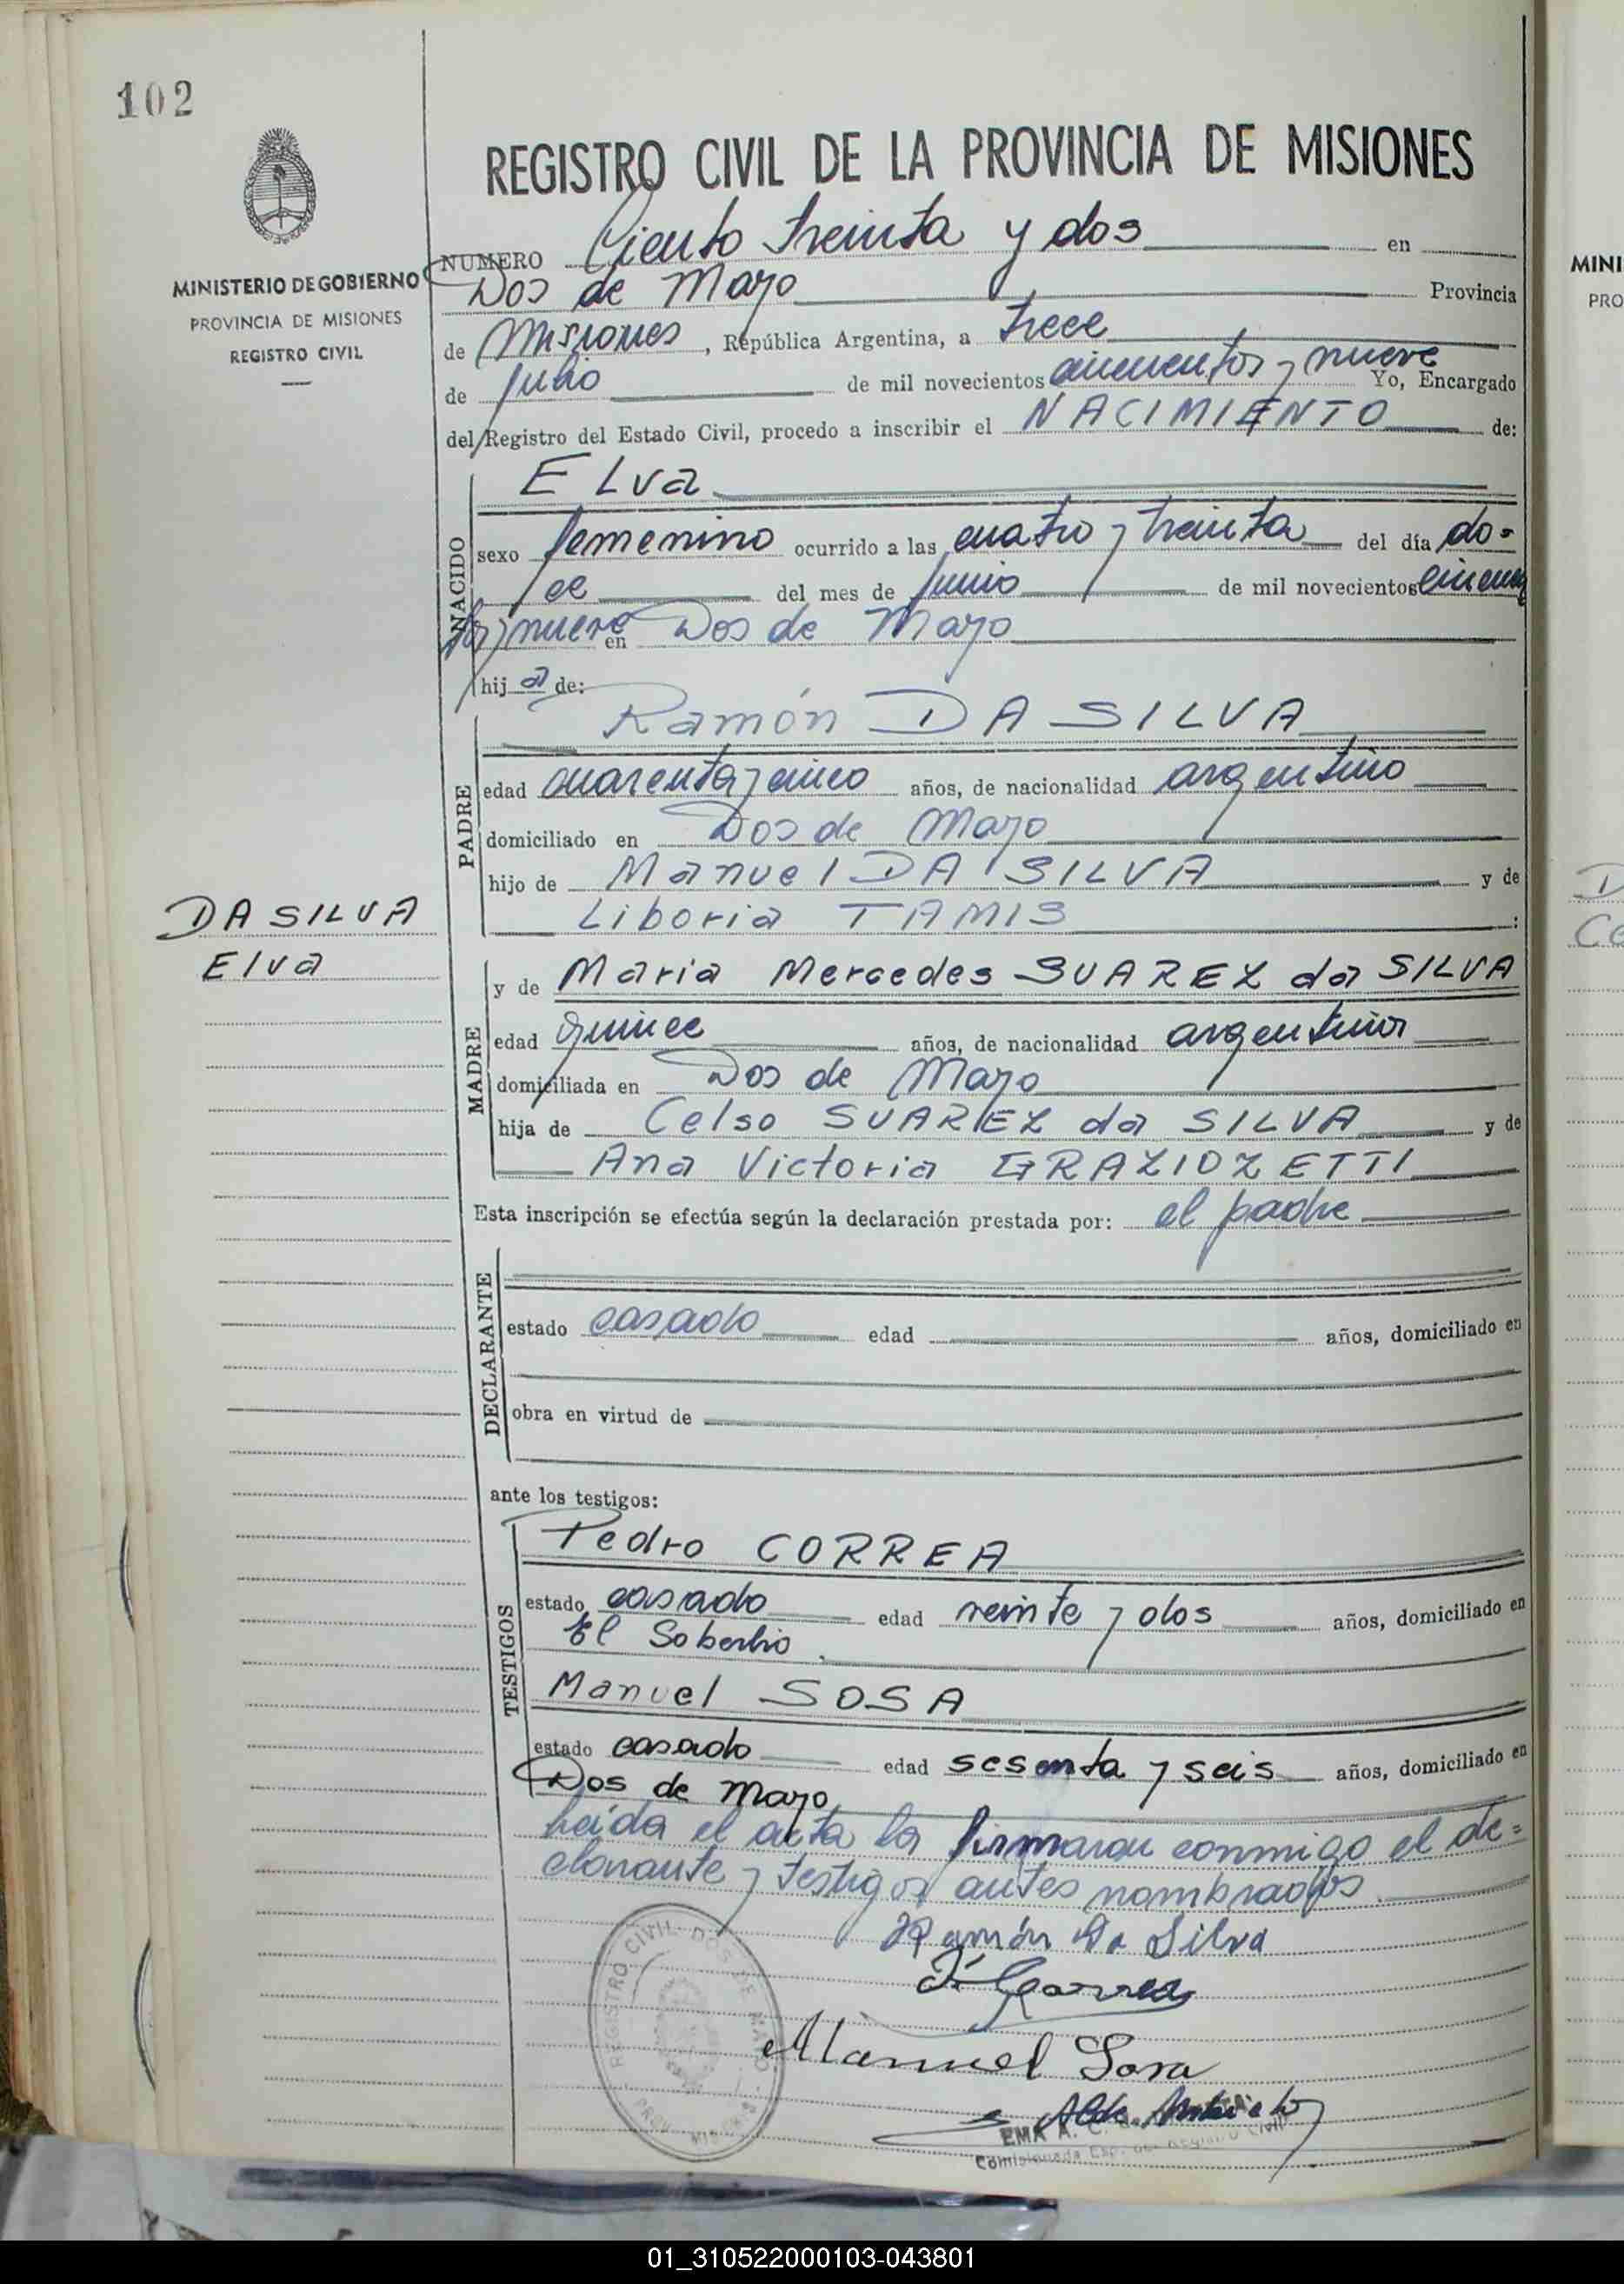 102
REGISTRO CIVIL DE LA PROVINCIA DE MISIONES
MINISTERIO DE GOBIERNO
PROVINCIA DE MISIONES
REGISTRO CIVIL
NUMERO Ciento treinta y dos en
Dos de Mayo Provincia
de Misiones, República Argentina, a trece
de julio de mil novecientos cincuentos y nueve Yo, Encargado
del Registro del Estado Civil, procedo a inscribir el NACIMIENTO de:
NACIDO
Elva
sexo femenino ocurrido a las cuatro y treinta del día do=
ce del mes de junio de mil novecientos cincuen
ta y nueve en Dos de Mayo
hij a de:
PADRE
Ramón DA SILVA
edad cuarenta y cinco años, de nacionalidad argentino
domiciliado en Dos de Mayo
hijo de Manuel DA SILVA y de
Liboria TAMIS :
DA SILVA
Elva
MADRE
y de Maria Mercedes SUAREZ da SILVA
edad quince años, de nacionalidad argentina
domiciliada en Dos de Mayo
hija de Celso SUAREZ da SILVA y de
Ana Victoria GRAZIOZETTI
Esta inscripción se efectúa según la declaración prestada por: el padre
DECLARANTE
estado casado edad años, domiciliado en
obra en virtud de
ante los testigos:
TESTIGOS
Pedro CORREA
estado casado edad veinte y dos años, domiciliado en
El Soberbio
Manuel SOSA
estado casado edad sesenta y seis años, domiciliado en
Dos de Mayo
Leída el acta la firmaron conmigo el de=
clarante y testigos antes nombrados.
Ramón Da Silva
P. Correa
Manuel Sosa
REGISTRO CIVIL DOS DE MAYO
PROV. MISIONES
EMA A. C.
Comisionada Esp. del Registro Civil
MINI
PRO
D
Ce
01_310522000103-043801